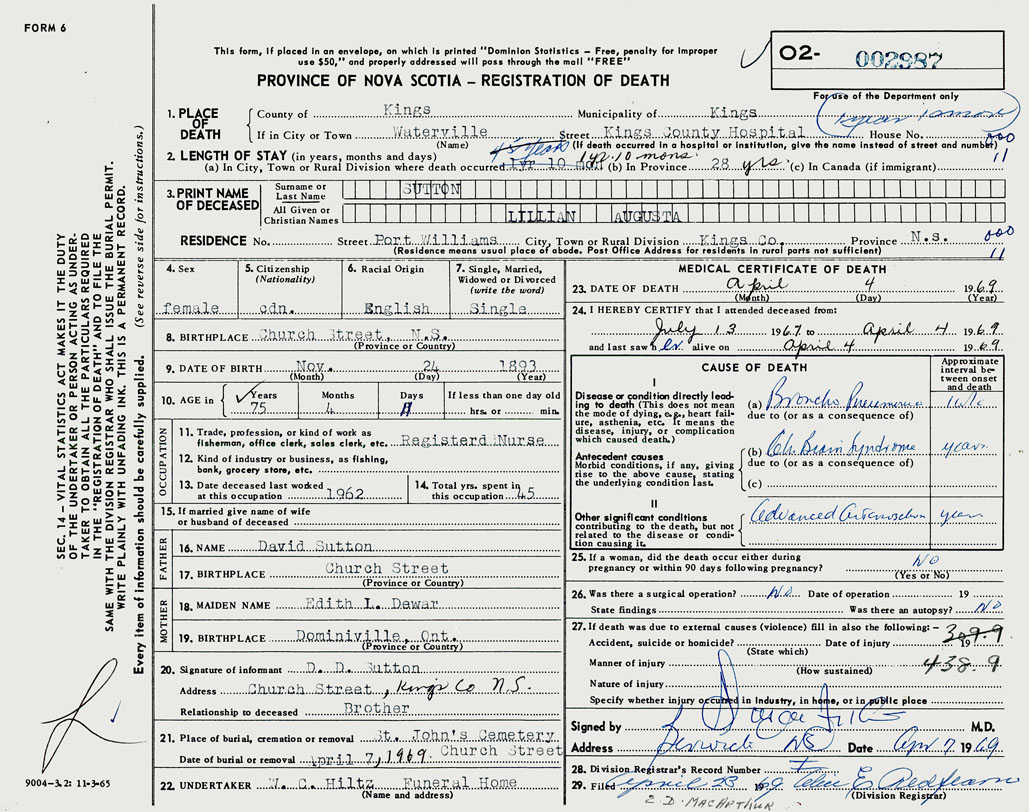 FORM 6
This form, if placed in an envelope, on which is printed "Dominion Statistics – Free, penalty for improper
use $50," and properly addressed will pass through the mail "FREE"
PROVINCE OF NOVA SCOTIA – REGISTRATION OF DEATH
02- 002987
For use of the Department only
1. PLACE OF DEATH
County of Kings Municipality of Kings
If in City or Town Waterville Street Kings County Hospital House No.
(Name) (If death occurred in a hospital or institution, give the name instead of street and number)
000
11
2. LENGTH OF STAY (in years, months and days)
(a) In City, Town or Rural Division where death occurred 1yr 10 mon 1 yr. 10 mons. (b) In Province 28 yrs. (c) In Canada (if immigrant)
3. PRINT NAME OF DECEASED
Surname or Last Name SUTTON
All Given or Christian Names LILLIAN AUGUSTA
RESIDENCE No. Street Port Williams City, Town or Rural Division Kings Co. Province N.s.
(Residence means usual place of abode. Post Office Address for residents in rural parts not sufficient)
000
11
4. Sex female
5. Citizenship (Nationality) cdn.
6. Racial Origin English
7. Single, Married, Widowed or Divorced (write the word) Single
8. BIRTHPLACE Church Street, N.S.
(Province or Country)
9. DATE OF BIRTH Nov. 24 1893
(Month) (Day) (Year)
10. AGE in Years 75 Months 4 Days If less than one day old hrs. or min.
OCCUPATION
11. Trade, profession, or kind of work as
fisherman, office clerk, sales clerk, etc. Registerd Nurse
12. Kind of industry or business, as fishing,
bank, grocery store, etc.
13. Date deceased last worked at this occupation 1962
14. Total yrs. spent in this occupation 45
15. If married give name of wife
or husband of deceased
FATHER
16. NAME David Sutton
17. BIRTHPLACE Church Street
(Province or Country)
MOTHER
18. MAIDEN NAME Edith L. Dewar
19. BIRTHPLACE Dominiville, Ont.
(Province or Country)
20. Signature of informant D. D. Sutton
Address Church Street, Kings Co N.S.
Relationship to deceased Brother
21. Place of burial, cremation or removal St. John's Cemetery
Date of burial or removal April 7, 1969. Church Street
22. UNDERTAKER W. C. Hiltz Funeral Home
(Name and address)
MEDICAL CERTIFICATE OF DEATH
23. DATE OF DEATH April 4 1969
(Month) (Day) (Year)
24. I HEREBY CERTIFY that I attended deceased from:
July 13 1967 to April 4 1969
and last saw her alive on April 4 1969
CAUSE OF DEATH
Approximate interval between onset and death
I
Disease or condition directly leading to death (This does not
mean the mode of dying, e.g., heart failure, asthenia, etc. It means the
disease, injury, or complication
which caused death.)
(a) Broncho Pneumonia 1 wk
due to (or as a consequence of)
Antecedent causes
Morbid conditions, if any, giving
rise to the above cause, stating
the underlying condition last.
(b) Ch. Brain Syndrome years
due to (or as a consequence of)
(c)
II
Other significant conditions
contributing to the death, but not
related to the disease or condition causing it.
Advanced years
25. If a woman, did the death occur either during
pregnancy or within 90 days following pregnancy? NO
(Yes or No)
26. Was there a surgical operation? NO Date of operation 19
State findings Was there an autopsy? NO
27. If death was due to external causes (violence) fill in also the following: – 309.9
Accident, suicide or homicide? Date of injury 19
(State which)
Manner of injury 438.9
(How sustained)
Nature of injury
Specify whether injury occurred in industry, in home, or in public place
Signed by M.D.
Address Berwick NS Date Apr 7 1969
28. Division Registrar's Record Number
29. Filed April 23 1969
(Division Registrar)
E. D. MACARTHUR
SEC. 14 – VITAL STATISTICS ACT MAKES IT THE DUTY
OF THE UNDERTAKER OR PERSON ACTING AS UNDERTAKER TO OBTAIN ALL THE PARTICULARS REQUIRED
IN THE "REGISTRATION OF DEATH" AND TO FILE THE
SAME WITH THE DIVISION REGISTRAR WHO SHALL ISSUE THE BURIAL PERMIT.
WRITE PLAINLY WITH UNFADING INK. THIS IS A PERMANENT RECORD.
Every item of information should be carefully supplied. (See reverse side for instructions.)
9004-3.2: 11-3-65